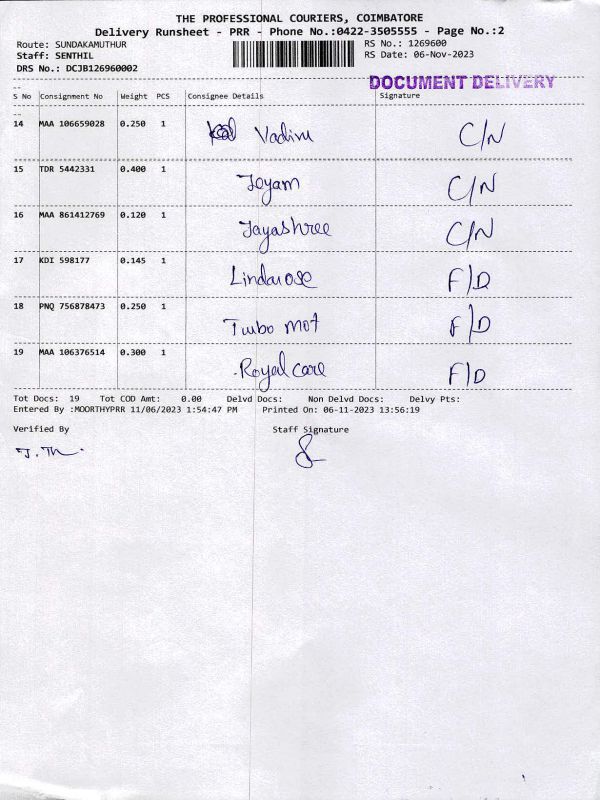 THE PROFESSIONAL COURIERS, COIMBATORE
Delivery Runsheet - PRR - Phone No.:0422-3505555 - Page No.:2
Route: SUNDAKAMUTHUR RS No.: 1269600
Staff: SENTHIL RS Date: 06-Nov-2023
DRS No.: DCJB126960002
DOCUMENT DELIVERY
S No Consignment No Weight PCS Consignee Details Signature
14 MAA 106659028 0.250 1 Vadivu C/N
15 TDR 5442331 0.400 1 Joyam C/N
16 MAA 861412769 0.120 1 Jayashree C/N
17 KDI 598177 0.145 1 Lindarose F/D
18 PNQ 756878473 0.250 1 Turbo mot F/D
19 MAA 106376514 0.300 1 Royal care F/D
Tot Docs: 19 Tot COD Amt: 0.00 Delvd Docs: Non Delvd Docs: Delvy Pts:
Entered By :MOORTHYPRR 11/06/2023 1:54:47 PM Printed On: 06-11-2023 13:56:19
Verified By Staff Signature